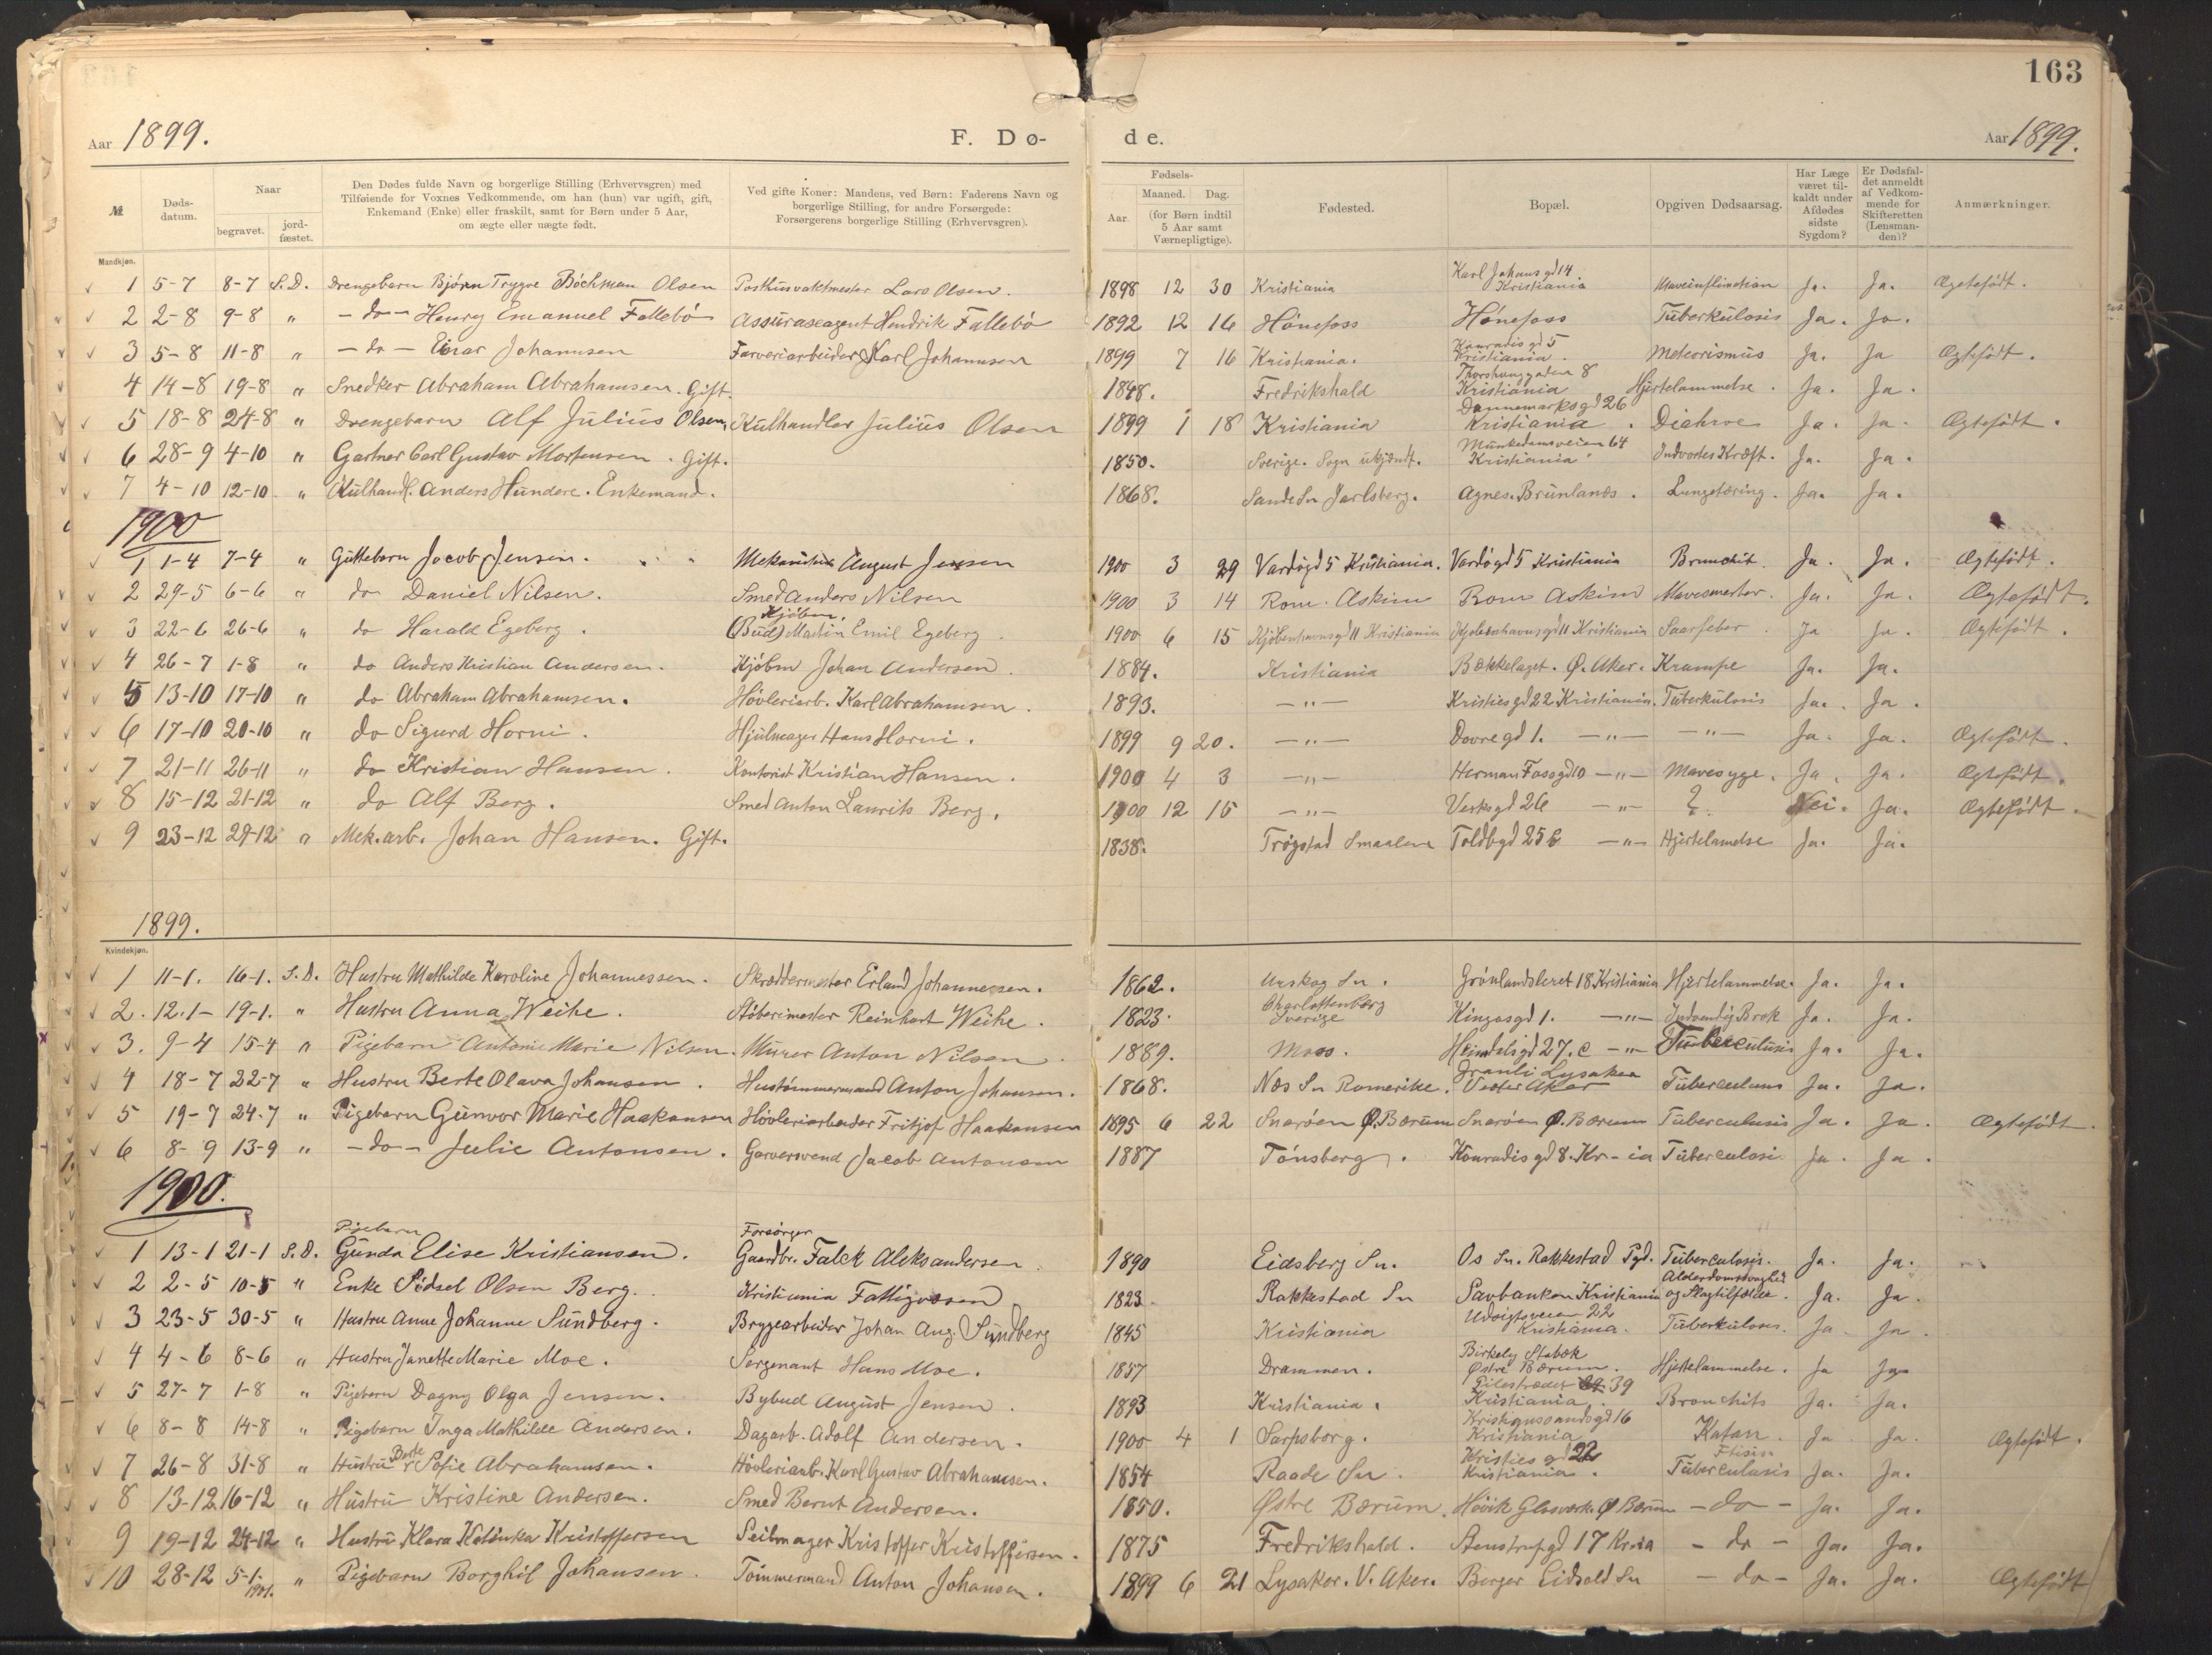 163
Aar 1899. F. Dø- de. Aar 1899.
№
Døds-datum.
Naar
begravet.
jord-fæstet.
Den Dødes fulde Navn og borgerlige Stilling (Erhvervsgren) med
Tilføiende for Voxnes Vedkommende, om han (hun) var ugift, gift,
Enkemand (Enke) eller fraskilt, samt for Børn under 5 Aar,
om ægte eller uægte født.
Ved gifte Koner: Mandens, ved Børn: Faderens Navn og
borgerlige Stilling, for andre Forsørgede:
Forsørgerens borgerlige Stilling (Erhvervsgren).
Fødsels-
Aar. Maaned. Dag.
(for Børn indtil
5 Aar samt
Værnepligtige).
Fødested.
Bopæl.
Opgiven Dødsaarsag.
Har Læge
været til-
kaldt under
Afdødes
sidste
Sygdom?
Er Dødsfal-
det anmeldt
af Vedkom-
mende for
Skifteretten
(Lensman-
den)?
Anmærkninger.
Mandkjøn.
1 5-7 8-7 S.D. Drengebarn Bjørn Trygve Böchman Olsen Posthusvaktmester Lars Olsen. 1898 12 30 Kristiania Karl Johans gd 14 Kristiania Ja. Ja. Ægtefødt.
2 2-8 9-8 " -do- Henry Emanuel Fallebö Assuraseagent Hendrik Fallebö 1892 12 16 Hönefoss Hönefoss Tüberkülosis Ja. Ja.
3 5-8 11-8 " -do- Einar Johannsen Farveriarbeider Karl Johannsen 1899 7 16 Kristiania. Konradis gd 5 Kristiania. Meteorismüs Ja. Ja Ægtefødt.
4 14-8 19-8 " Snedker Abraham Abrahamsen. Gift. 1848. Fredrikshald Thorshauggaden 8 Kristiania Hjertelammelse. Ja. Ja.
5 18-8 24-8 " Drengebarn Alf Julius Olsen, Kulhandler Julius Olsen 1899 1 18 Kristiania Dannemarksgd 26 Kristiania. Diahroe Ja. Ja. Ægtefødt.
6 28-9 4-10 " Gartner Carl Gustav Mortensen. Gift. 1850. Sverige. Sogn ukjendt. Munkedamsveien 64 Kristiania. Indvortes Kræft. Ja. Ja.
7 4-10 12-10 " Kulhandl. Anders Hundere. Enkemand. 1868. Sande Sn Jarlsberg. Agnes. Brunlanæs. Lungetæring. Ja. Ja.
1900
1 1-4 7-4 " Guttebarn Jacob Jensen. Mekanikus August Jensen 1900 3 29 Vardögd 5 Kristiania. Vardögd 5 Kristiania Brunchit. Ja. Ja. Ægtefødt.
2 29-5 6-6 " do Daniel Nilsen. Smed Anders Nilsen 1900 3 14 Rom. Askim Rom Askim Mavesmerter. Ja. Ja. Ægtefødt.
3 22-6 26-6 " do Harald Egeberg. Kjöbm. (Bud) Martin Emil Egeberg. 1900 6 15 Kjöbenhavnsgd 11 Kristiania Kjøbenhavnsgd 11 Kristiania Saarfeber. Ja Ja. Ægtefødt.
4 26-7 1-8 " do Anders Kristian Andersen. Kjöbm Johan Andersen. 1884. Kristiania Bækkelaget. Ø. Aker. Krampe Ja. Ja.
5 13-10 17-10 " do Abraham Abrahamsen. Hövleriarb. Karl Abrahamsen. 1893. -"- Kristies gd 22 Kristiania. Tüberkulosis Ja. Ja.
6 17-10 20-10 " do Sigurd Horni. Hjulmager Hans Horni. 1899 9 20. -"- Dovregd 1. -"- -"- Ja. Ja. Ægtefødt.
7 21-11 26-11 " do Kristian Hansen. Kontorist Kristian Hansen. 1900 4 3 -"- Herman Fossgd 10 -"- Mavesyge. Ja. Ja. Ægtefødt.
8 15-12 21-12 " do Alf Berg. Smed Anton Laurits Berg. 1900 12 15 -"- Verksgd 26 -"- ?. Nei. Ja. Ægtefødt.
9 23-12 29-12 " Mek. arb. Johan Hansen. Gift. 1838. Trøgstad Smaalene Toldbgd 25 b -"- Hjertelamelse Ja. Ja.
1899.
Kvindekjøn.
1 11-1. 16-1. S.D. Hustru Mathilde Karoline Johannessen. Skræddermester Erland Johannessen. 1862. Urskog Sn. Grönlandsleret 18 Kristiania Hjertelammelse. Ja. Ja.
2. 12.1- 19-1. " Hustru Anna Weihe. Støberimester Reinhart Weihe. 1823. Charlottenberg Sverige Kingosgd 1. -"- Indvendig Brok Ja. Ja.
3. 9-4 15-4 " Pigebarn Antonie Marie Nilsen. Murer Anton Nilsen 1889. Moss. Heimdalsgd 27. c -"- Tüberculusis Ja. Ja.
4 18-7 22-7 " Hustru Berte Olava Johansen. Hustömmermand Anton Johansen. 1868. Næs Sn Romerike. Granli Lysaker Vester Aker Ja. Ja.
5 19-7 24-7 " Pigebarn Gunvor Marie Haakonsen Hövleriarbeider Fritjof Haakonsen 1895 6 22 Snarøen Ø. Bærum Snarøen Ø. Bærum Tuberculusis Ja. Ja. Ægtefødt.
6 8-9 13-9 " -do- Julie Antonsen. Garversvend Jacob Antonsen 1887 Tönsberg. Konradis gd 8. Kr-ia Tüberculosi Ja. Ja.
1900.
1 13-1 21-1 S.D. Pigebarn Gunda Elise Kristiansen. Forsörger Gaardbr. Falck Aleksandersen. 1890 Eidsberg Sn. Os Sn. Rakkestad Pgd. Tüberculosis. Ja. Ja.
2 2-5 10-5 " Enke Sidsel Olsen Berg. Kristiania Fattigvæsen 1823 Rakkestad Sn Savbanken Kristiania Alderdomssvaghed og Slagtilfælde. Ja. Ja.
3 23-5 30-5 " Hustru Anne Johanne Sundberg. Bryggearbeider Johan Aug. Sundberg 1845 Kristiania Udsigtsveien 22 Kristiania. Tüberkuloses. Ja. Ja.
4 4-6 8-6 " Hustru Janette Marie Moe. Sergenant Hans Moe. 1857 Drammen. Birkely Stabæk Østre Bærum. Hjertelammelse. Ja Ja
5 27-7 1-8 " Pigebarn Dagny Olga Jensen. Bybud August Jensen. 1893 Kristiania. Pilestrædet 39 Kristiania. Bronchits Ja. Ja.
6 8-8 14-8 " Pigebarn Inga Mathilde Andersen. Dagarb. Adolf Andersen. 1900 4 1 Sarpsborg. Kristianssandsgd 16 Kristiania Katan. Ja Ja. Ægtefødt.
7 26-8 31-8 " Hustru Berte Sofie Abrahamsen. Hövleriarb. Karl Gustav Abrahamsen. 1854 Raade Sn. Kristies gd 22 Kristiania. Ftisis Tüberculosis Ja. Ja.
8 13-12 16-12 " Hüstrü Kristine Andersen. Smed Bernt Andersen. 1850. Østre Bærum. Hövik Glasværk. Ø Bærum -do- Ja. Ja.
9 19-12 24-12 " Hustru Klara Katinka Kristoffersen Seilmager Kristoffer Kristoffersen. 1875 Fredrikshald. Stenstrupgd 17 Kr.ia -do- Ja. Ja.
10 28-12 5-1. 1901. " Pigebarn Borghil Johansen. Tömmermand Anton Johansen. 1899 6 21 Lysaker. V. Aker. Berger Eidsvold Sn -do- Ja. Ja. Ægtefødt